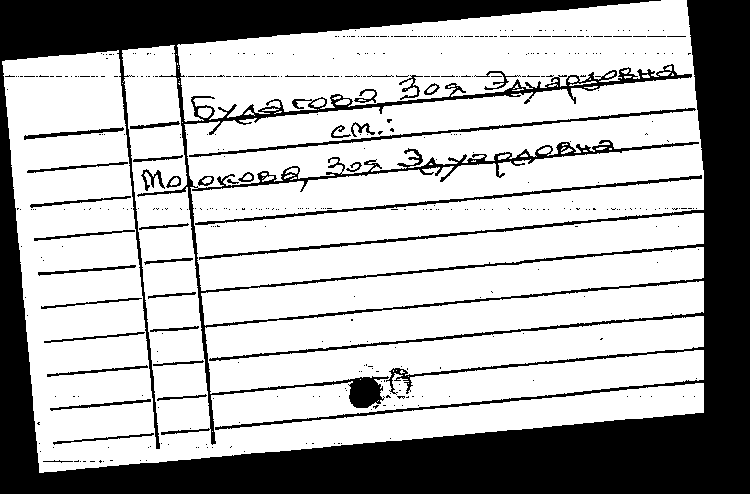 Булакова, Зоя Эдуардовна
см.:
Молокова, Зоя Эдуардовна